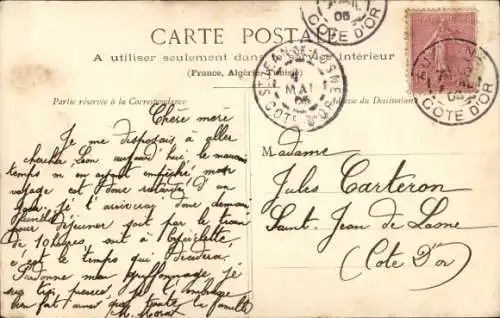 CARTE POSTALE
A utiliser seulement dans Intérieur
(France, Algérie, Tunisie)
Partie réservée à la Correspondance
Adresse du Destinataire
ST JEAN-DE-LOSNE
MAI
05
COTE D'OR
05
COTE D'OR
05
COTE D'OR
Chère mère
Je me disposais à aller
chercher Léon aujourd'hui le mauvais
temps m en ayant empêché, mon
voyage est donc retardé d'un
jour. Je t'arriverai donc demain
pour déjeuner soit par le train
de 10 heures soit à
c'est le temps qui décidera.
Pardonne mon griffonnage, je
suis très pressé,
bien fort ainsi que toute la famille
M. Morat
Madame
Jules Carteron
Saint-Jean de Losne
(Cote d'Or)